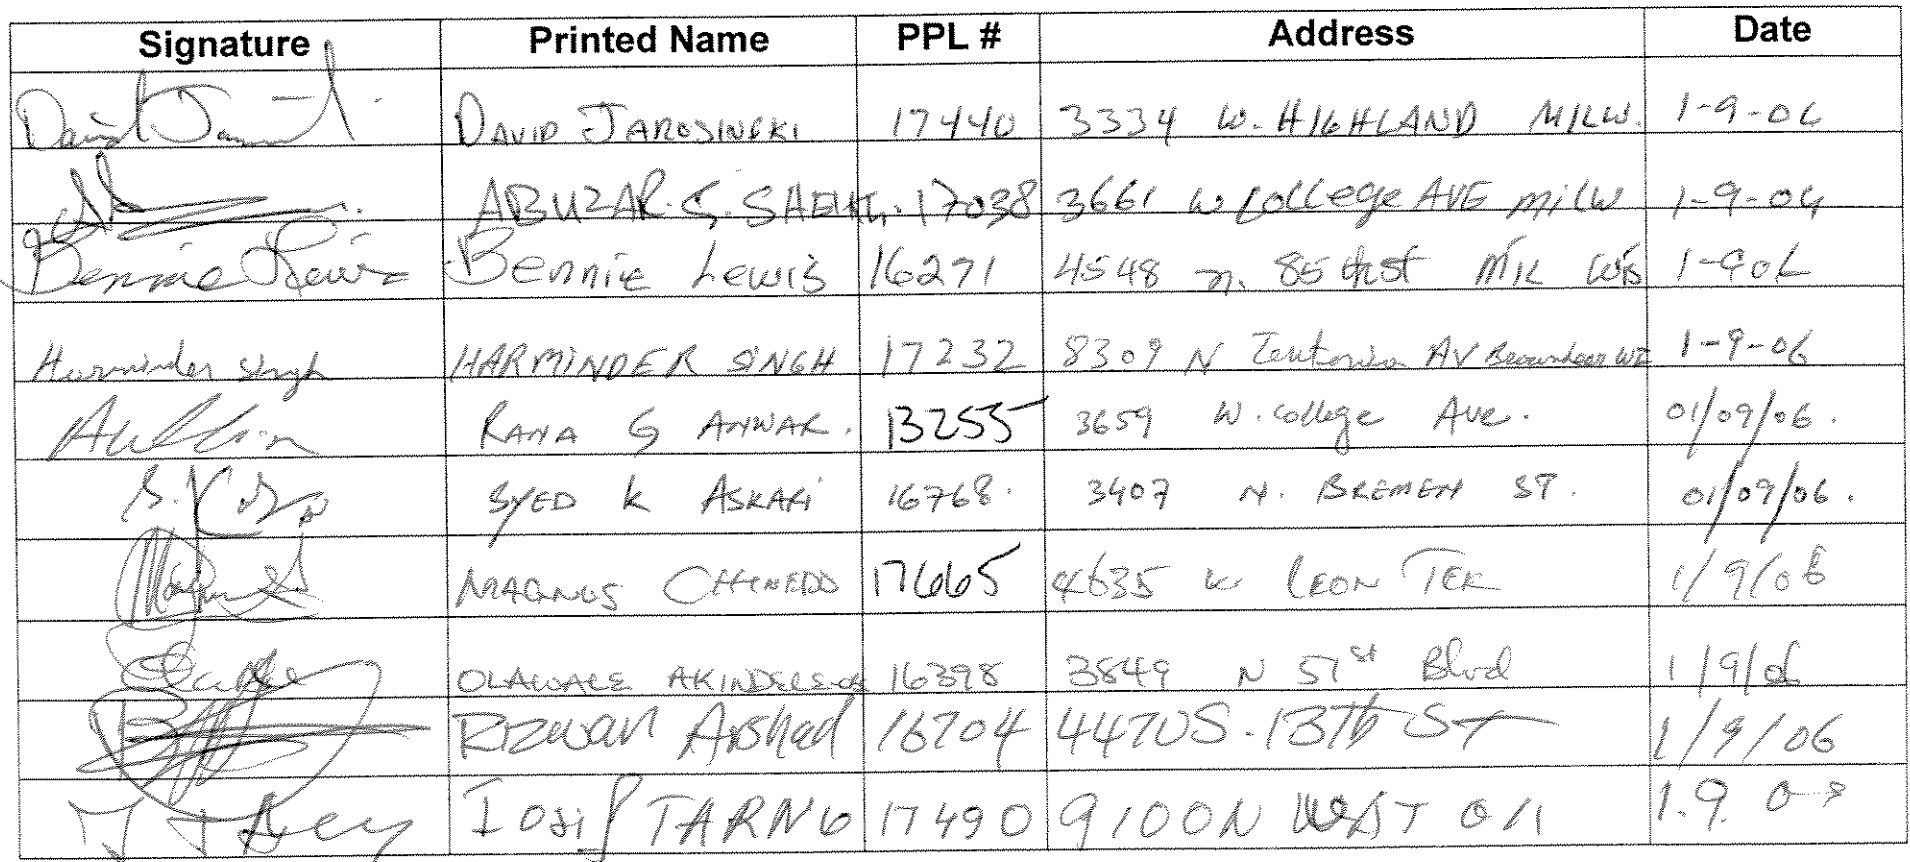 Signature Printed Name PPL # Address Date
David DAVID JAROSINSKI 17440 3334 W. HIGHLAND MILW. 1-9-06
ABUZAR. S. SHEIKH. 17038 3661 W College AVE MILW 1-9-06
Bennie Lewis Bennie Lewis 16271 4548 n. 85 thst MIL WIS 1-906
Harminder Singh HARMINDER SINGH 17232 8309 N Teutonia AV Browndeer WI 1-9-06
RANA G ANWAR. 13255 3659 W. College Ave. 01/09/06.
SYED K ASKARI 16768. 3407 N. BREMEN ST. 01/09/06.
MAGNUS CHINEDU 17665 4635 W LEON TER 1/9/06
OLAWALE 16398 3849 N 51st Blvd 1/9/06
RIZWAN Arshad 16704 4470 S. 13Th ST 1/9/06
Iosif 17490 9100 N 1.9.